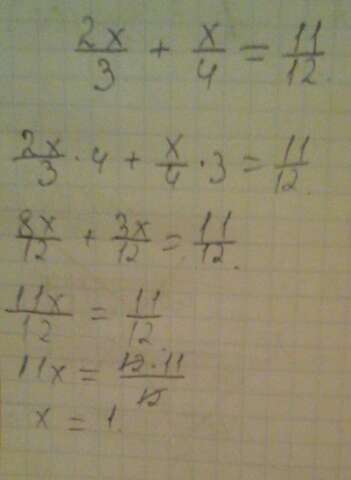 2x/3 + x/4 = 11/12.
2x/3 · 4 + x/4 · 3 = 11/12.
8x/12 + 3x/12 = 11/12.
11x/12 = 11/12.
11x = 12·11/12
x = 1.